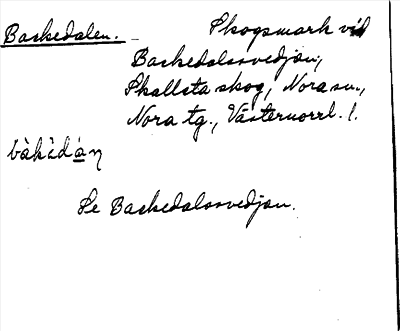 Backedalen. Skogsmark vid
Backedalssvedjan,
Skallsta skog, Nora sn.,
Nora tg., Västernorrl. l.
bàkàdánַ
Se Backedalssvedjan.